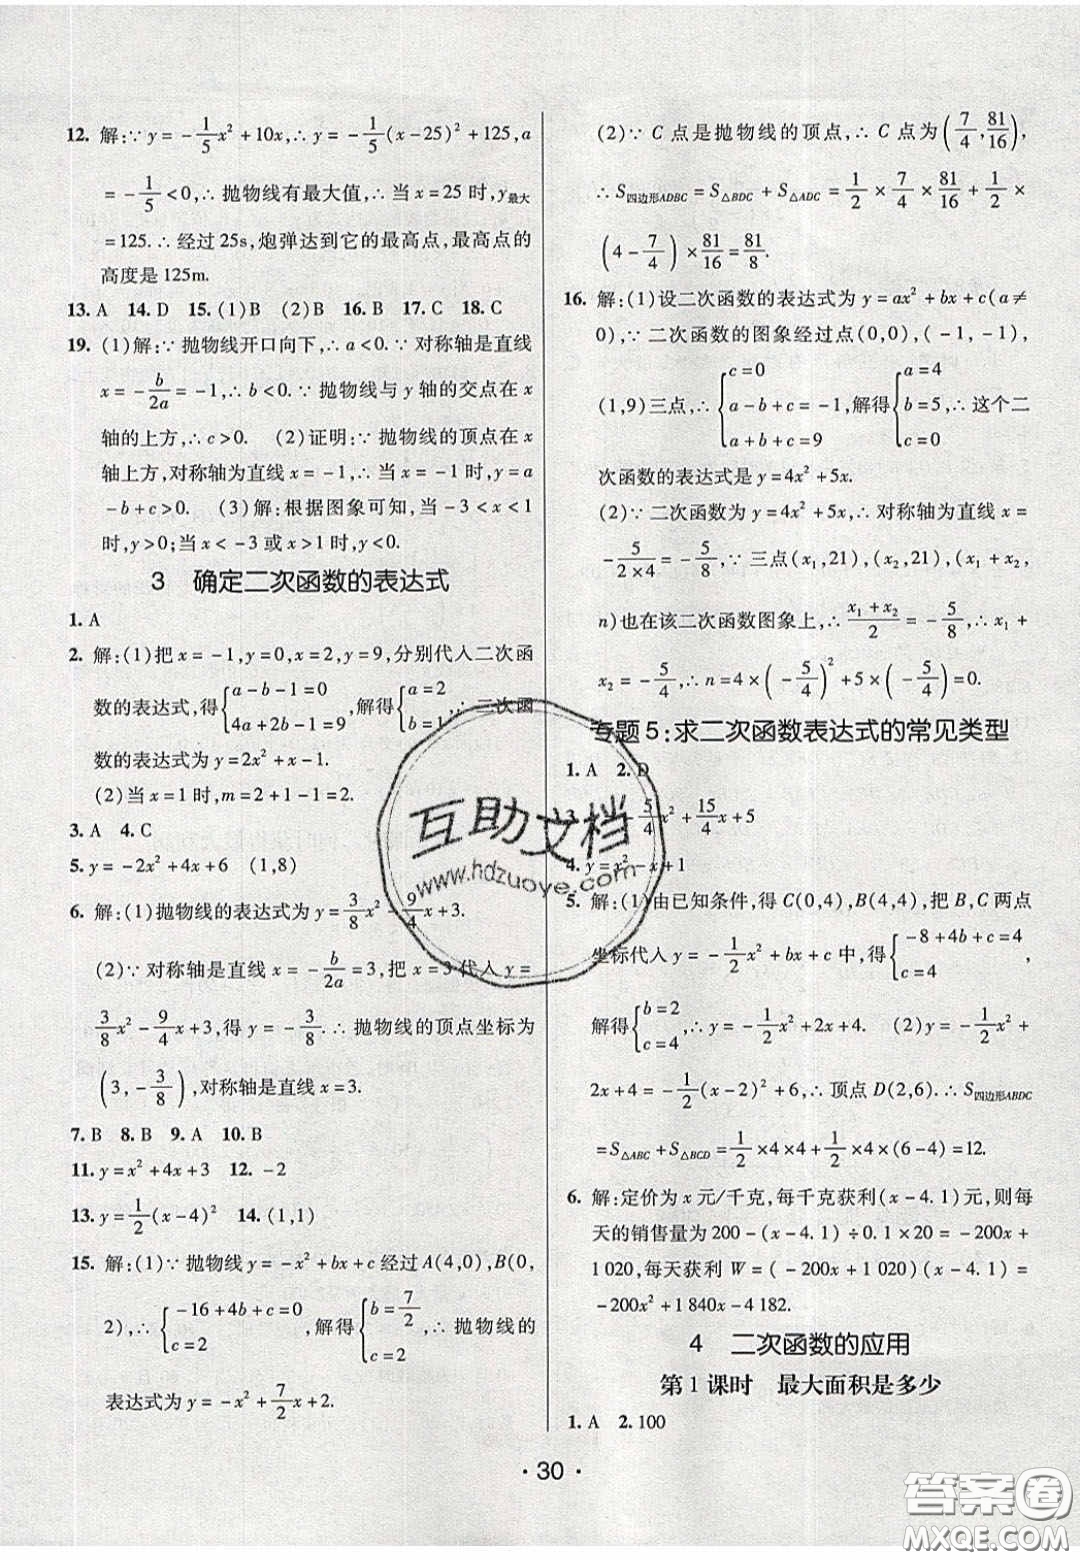 12. 解:∵y=-1/5x²+10x,∴y=-1/5(x-25)²+125,a
=-1/5<0,∴抛物线有最大值,∴当x=25时,y最大
=125.∴经过25s,炮弹达到它的最高点,最高点的
高度是125m.
13. A 14. D 15. (1)B (2)B 16. B 17. C 18. C
19. (1)解:∵抛物线开口向下,∴a<0.∵对称轴是直线
x=-b/2a=-1,∴b<0.∵抛物线与y轴的交点在x
轴的上方,∴c>0. (2)证明:∵抛物线的顶点在x
轴上方,对称轴为直线x=-1,∴当x=-1时,y=a
-b+c>0. (3)解:根据图象可知,当-3<x<1
时,y>0;当x<-3或x>1时,y<0.
3 确定二次函数的表达式
1. A
2. 解:(1)把x=-1,y=0,x=2,y=9,分别代入二次函
数的表达式,得{a-b-1=0 4a+2b-1=9,解得{a=2 b=1,∴二次函
数的表达式为y=2x²+x-1.
(2)当x=1时,m=2+1-1=2.
3. A 4. C
5. y=-2x²+4x+6 (1,8)
6. 解:(1)抛物线的表达式为y=3/8x²-9/4x+3.
(2)∵对称轴是直线x=-b/2a=3,把x=3代入y=
3/8x²-9/4x+3,得y=-3/8.∴抛物线的顶点坐标为
(3,-3/8),对称轴是直线x=3.
7. B 8. B 9. A 10. B
11. y=x²+4x+3 12. -2
13. y=1/2(x-4)² 14. (1,1)
15. 解:(1)∵抛物线y=-x²+bx+c经过A(4,0),B(0,
2),∴{-16+4b+c=0 c=2,解得{b=7/2 c=2,∴抛物线的
表达式为y=-x²+7/2x+2.
(2)∵C点是抛物线的顶点,∴C点为(7/4,81/16),
∴S四边形ADBC=S△BDC+S△ADC=1/2×7/4×81/16+1/2×
(4-7/4)×81/16=81/8.
16. 解:(1)设二次函数的表达式为y=ax²+bx+c(a≠
0),∵二次函数的图象经过点(0,0),(-1,-1),
(1,9)三点,∴{c=0 a-b+c=-1 a+b+c=9,解得{a=4 b=5 c=0,∴这个二
次函数的表达式是y=4x²+5x.
(2)∵二次函数为y=4x²+5x,∴对称轴为直线x=
-5/2×4=-5/8,∵三点(x₁,21),(x₂,21),(x₁+x₂,
n)也在该二次函数图象上,∴x₁+x₂/2=-5/8,∴x₁+
x₂=-5/4,∴n=4×(-5/4)²+5×(-5/4)=0.
专题5:求二次函数表达式的常见类型
1. A 2. D
3. -5/4x²+15/4x+5
4. y=x²-x+1
5. 解:(1)由已知条件,得C(0,4),B(4,4),把B,C两点
坐标代入y=-1/2x²+bx+c中,得{-8+4b+c=4 c=4,
解得{b=2 c=4,∴y=-1/2x²+2x+4. (2)y=-1/2x²+
2x+4=-1/2(x-2)²+6,∴顶点D(2,6).∴S四边形ABDC
=S△ABC+S△BCD=1/2×4×4+1/2×4×(6-4)=12.
6. 解:定价为x元/千克,每千克获利(x-4.1)元,则每
天的销售量为200-(x-4.1)÷0.1×20=-200x+
1 020,每天获利W=(-200x+1 020)(x-4.1)=
-200x²+1 840x-4 182.
4 二次函数的应用
第1课时 最大面积是多少
1. A 2. 100
· 30 ·
互助文档
www.hdzuoye.com
答案圈
MXQE.COM